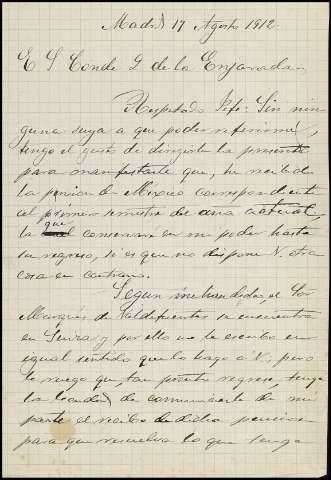 Madrid 17 Agosto 1912.
E S Conde D de la Enjarada.
Respetado Jefe: Sin nin
guna suya a que poder referirme,
tengo el gusto de dirigirle la presente
para manifestarle que, he recibido
la pension de Mexico correspondiente
al primer semestre del año actual,
la que conservaré en mi poder hasta
su regreso, si es que no dispone V. otra
cosa en contrario.
Segun me han dicho, el Sor
Marqués de Valdefuentes se encuentra
en Suiza y por ello no le escribo en
igual sentido que lo hago a V; pero
le ruego que, tan pronto regrese, tenga
la bondad de comunicarle de mi
parte el recibo de dicha pension
para que resuelva lo que tenga